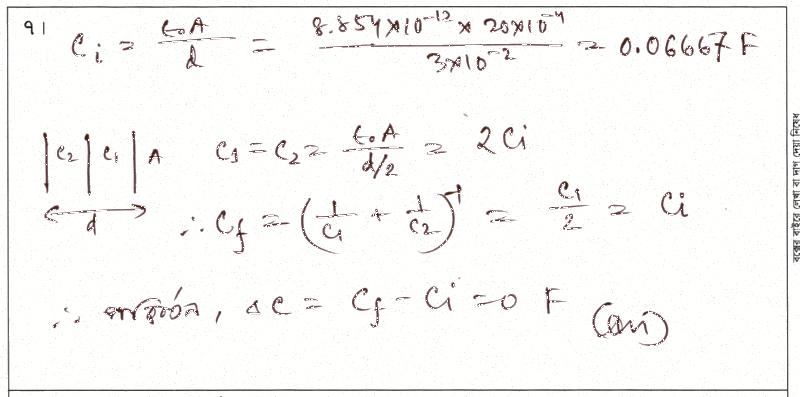 91 C_i = ε₀A/d = 8.854×10⁻¹² × 20×10⁻⁴ / 3×10⁻² = 0.06667 F
|C₂|C₁| A C₁ = C₂ = ε₀A/(d/2) = 2C_i
d ∴ C_f = (1/C₁ + 1/C₂)⁻¹ = C₁/2 = C_i
∴ পরিবর্তন, ΔC = C_f − C_i = 0 F (Ans)
বক্সের বাইরে লেখা বা দাগ দেয়া নিষেধ